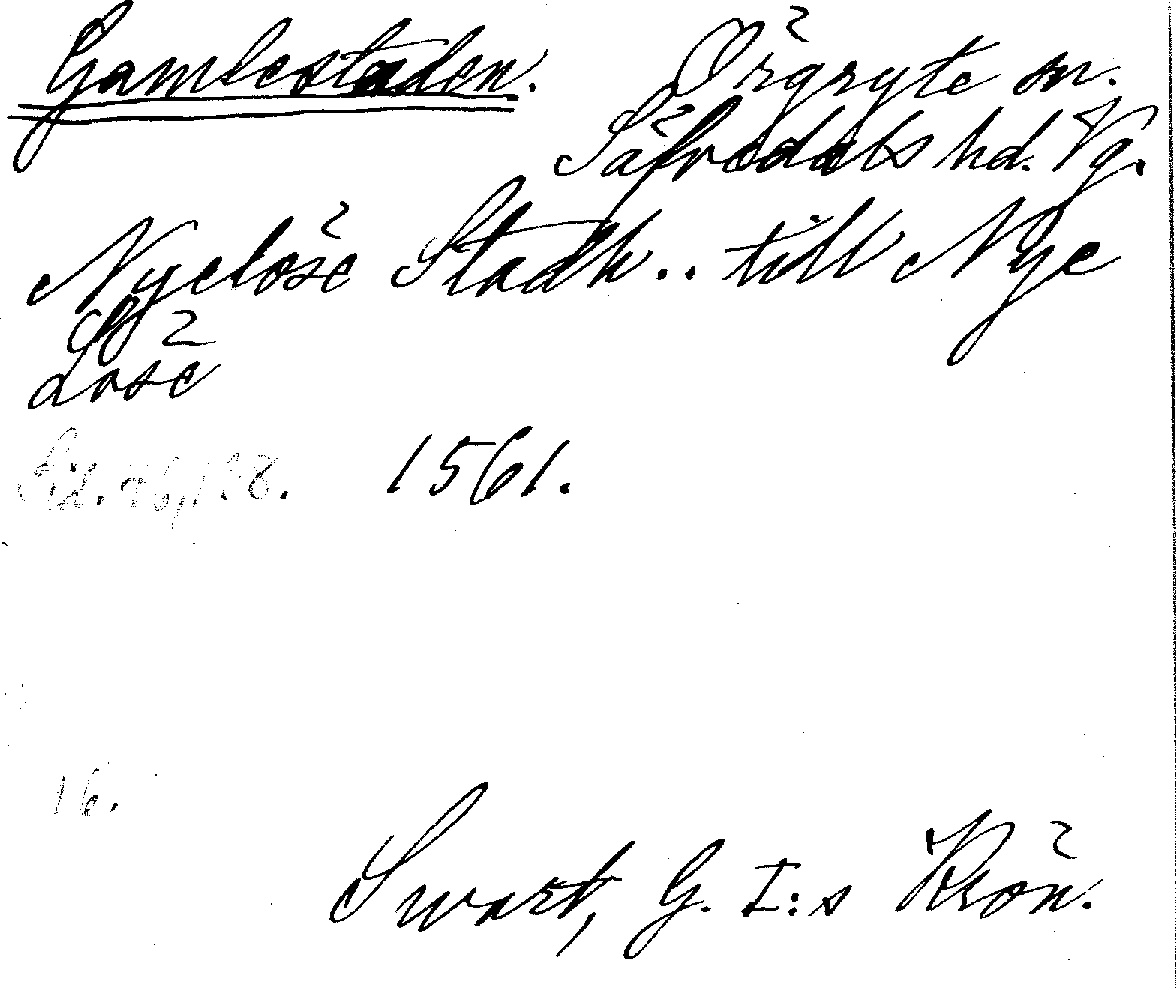 Gamlestaden. Örgryte sn.
Säfvedals hd. Vg.
Nyelöse Stadh.. till Nye
Löse
Sid. 46, 138. 1561.
16.
Swart, G. I:s Krön.